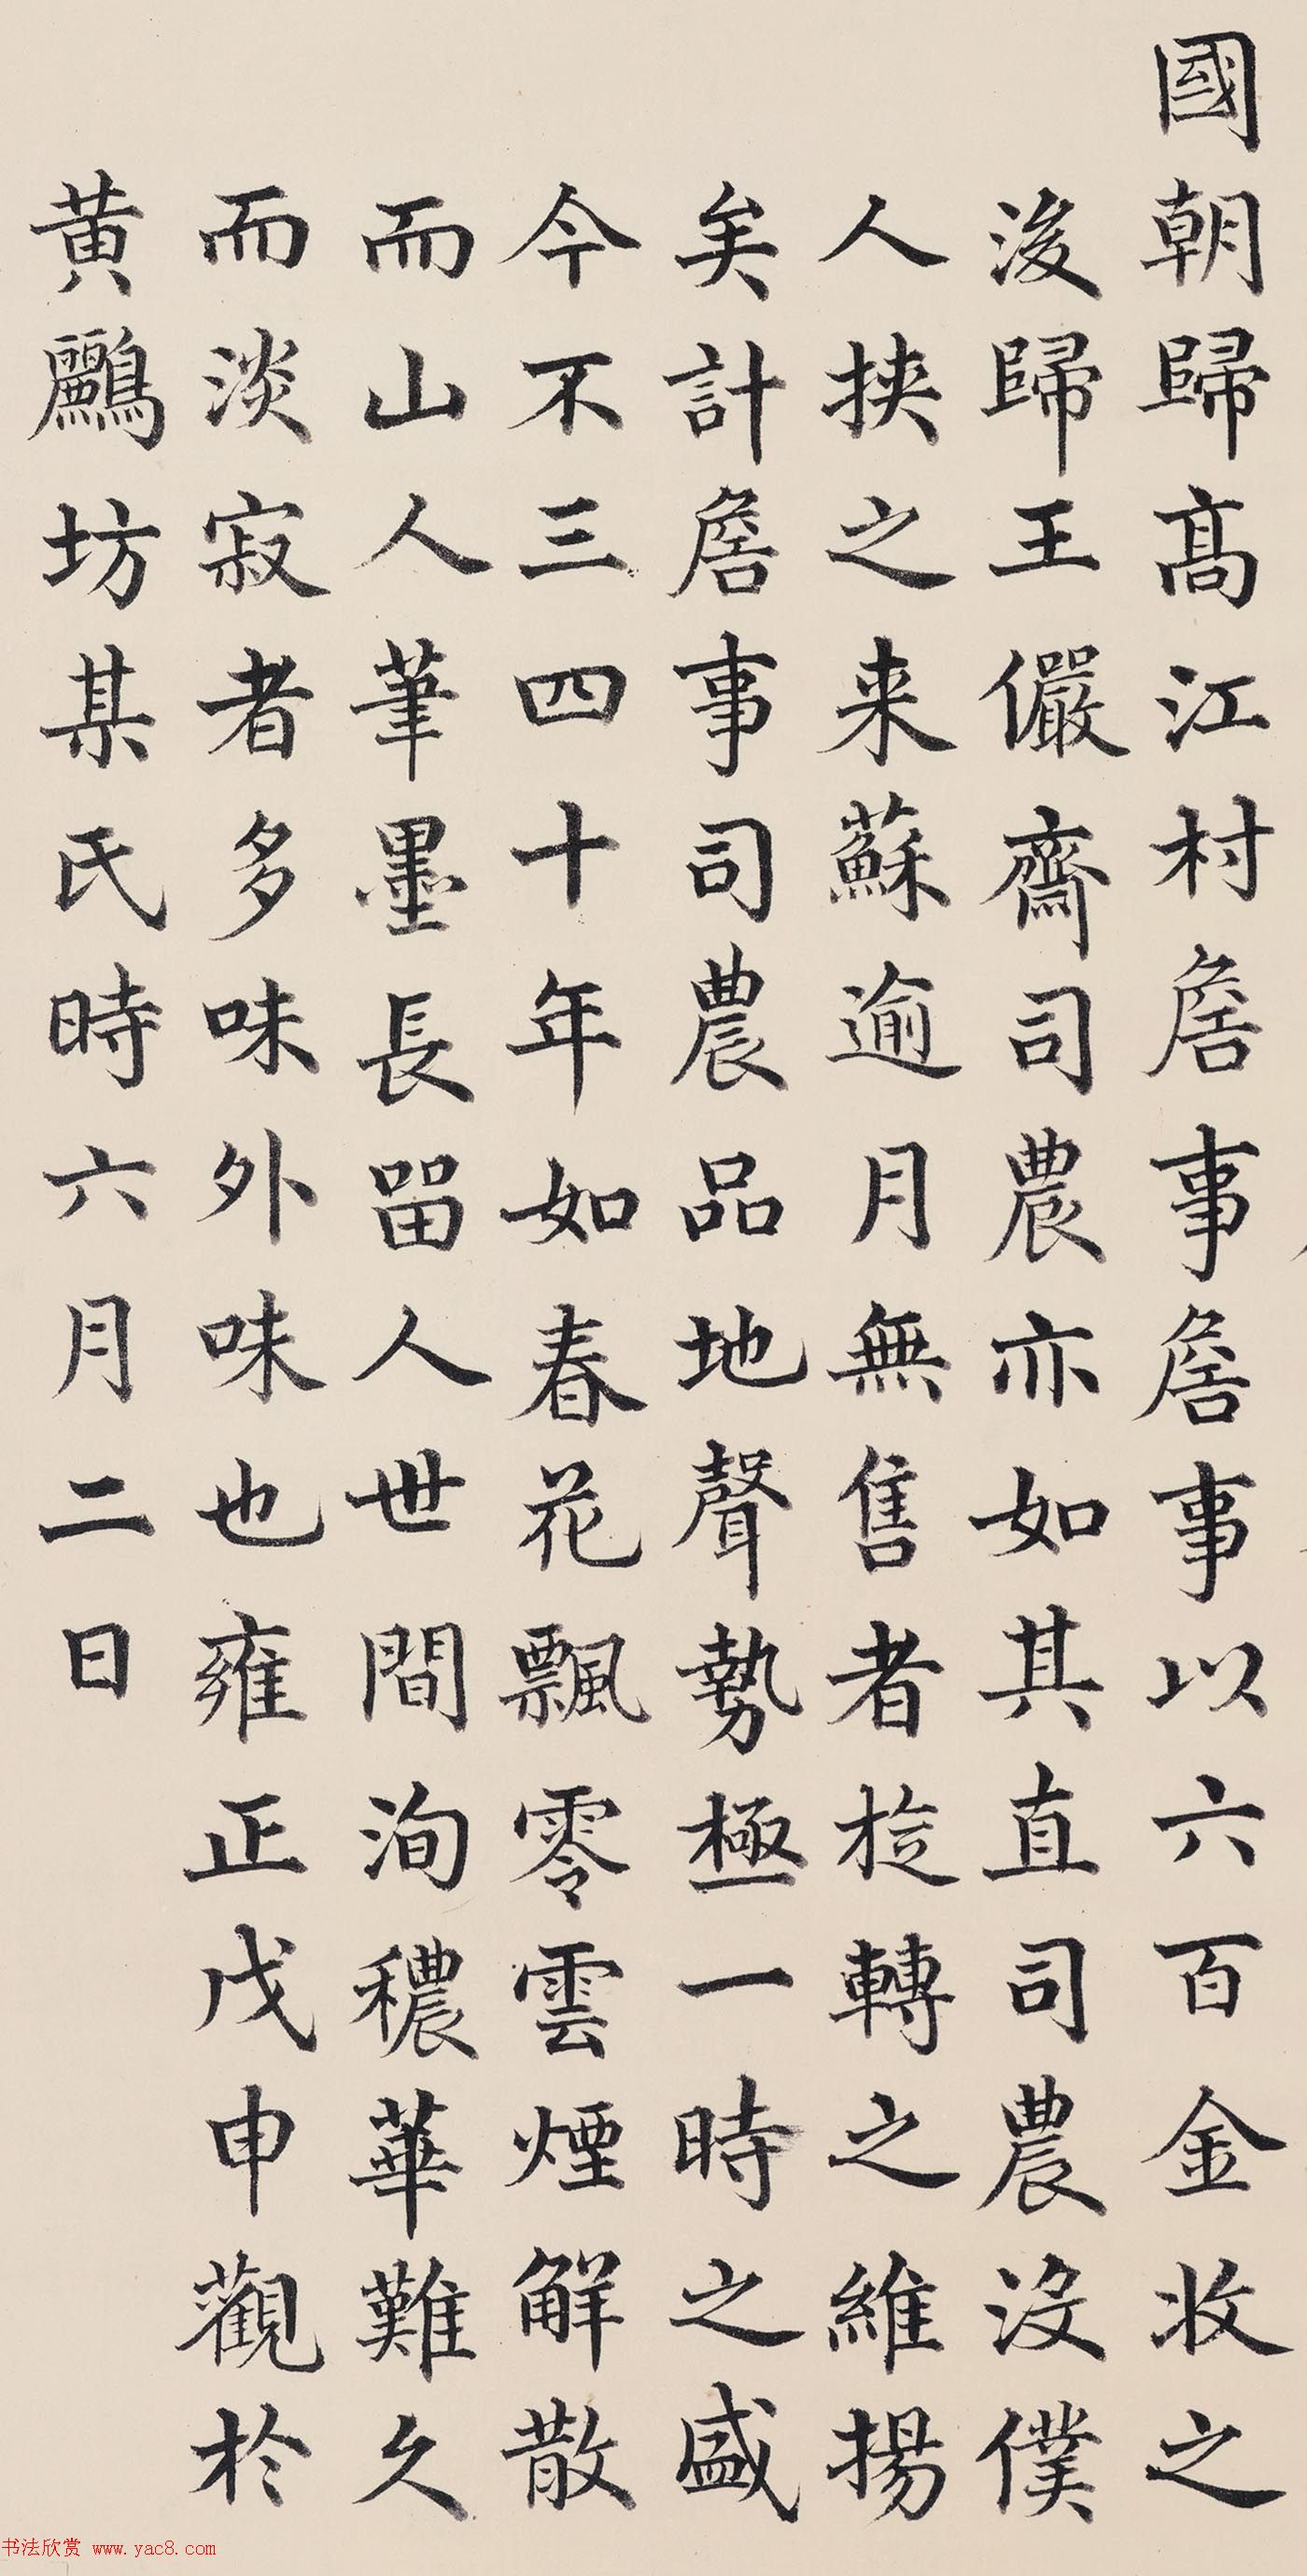 國朝歸髙江村詹事詹事以六百金收之
後歸王儼齋司農亦如其直司農沒僕
人挾之来蘇逾月無售者旋轉之維揚
矣計詹事司農品地聲勢極一時之盛
今不三四十年如春花飄零雲煙解散
而山人筆墨長留人世間洵穠華難久
而淡寂者多味外味也雍正戊申觀於
黄鸝坊某氏時六月二日
书法欣赏 www.yac8.com